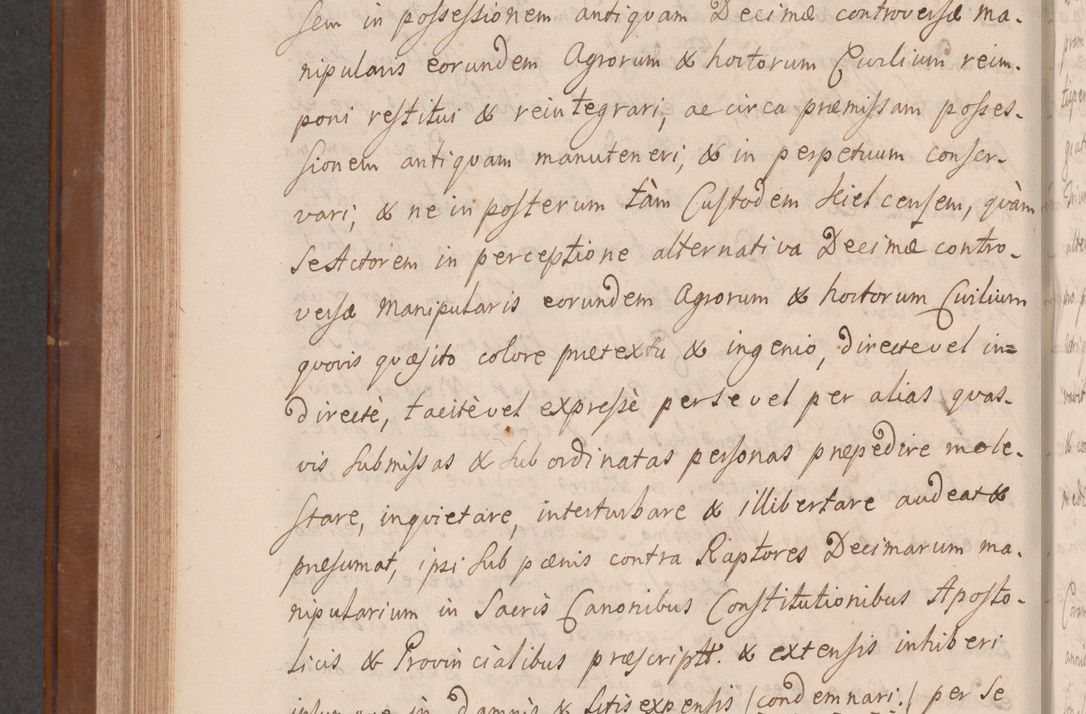 sem in possessionem antiquam Decimæ controversæ ma-
nipularis eorundem Agrorum & hortorum Civilium reim-
poni restitui & reintegrari, ac circa præmissam posses-
sionem antiquam manuteneri, & in perpetuum conser-
vari, & ne in posterum tàm Custodem Kielcensem, quàm
se Actorem in perceptione alternativa Decimæ contro-
versæ Manipularis eorundem Agrorum & hortorum Civilium
quovis quæsito colore prætextu & ingenio, directe vel in=
directè, tacitè vel expressè per se vel per alias quas-
vis submissas & subordinatas personas præpedire mole-
stare, inquietare, inturbare & illibertare audeat &
præsumat, ipsi sub pænis contra Raptores Decimarum ma-
nipularium in Sacris Canonibus Constitutionibus Aposto-
licis & Provincialibus præscriptt. & extensis inhiberi
in Damnis & Litis expensis /condemnari:/ per se